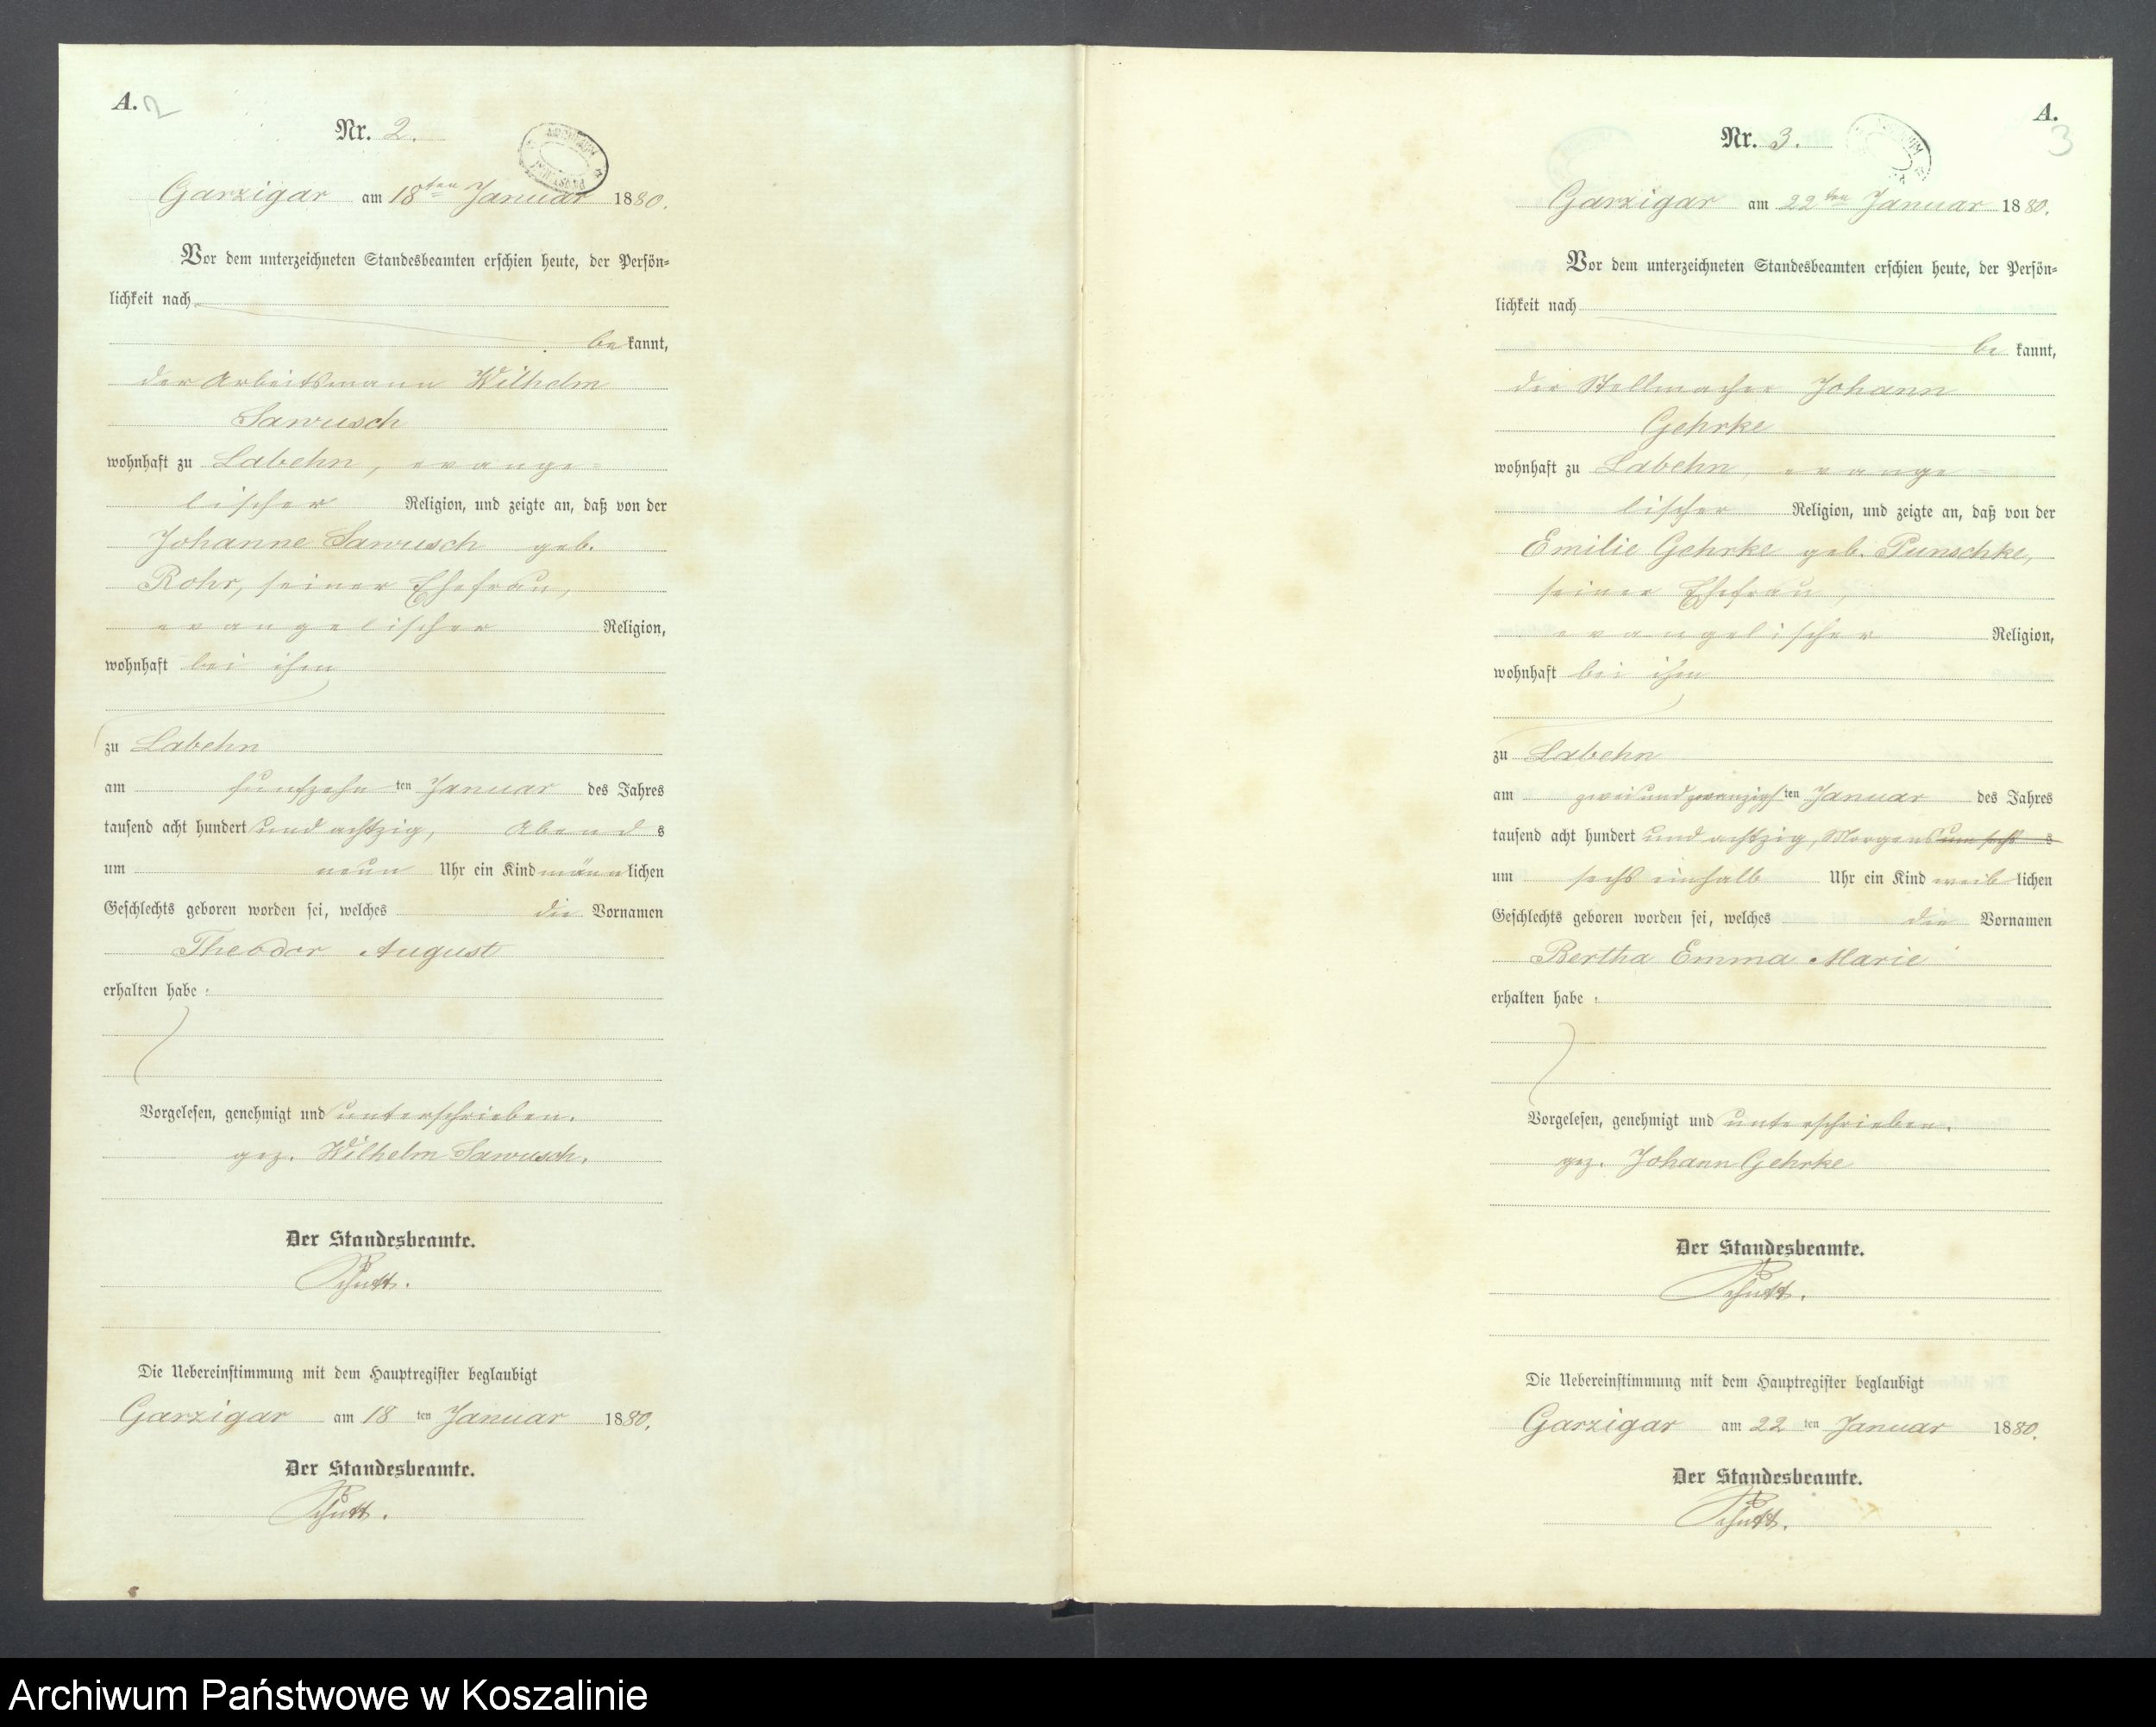 A. 2
Nr. 2.
Garzigar am 18ten Januar 1880.
Vor dem unterzeichneten Standesbeamten erschien heute, der Persön-
lichkeit nach
bekannt,
der Arbeitsmann Wilhelm
Sawusch
wohnhaft zu Labehn, evange-
lischer Religion, und zeigte an, daß von der
Johanne Sawusch geb.
Rohr, seiner Ehefrau,
evangelischer Religion,
wohnhaft bei ihm
zu Labehn
am funfzehn ten Januar des Jahres
tausend acht hundert und achtzig, Abends
um neun Uhr ein Kind männlichen
Geschlechts geboren worden sei, welches die Vornamen
Theodor August
erhalten habe.
Vorgelesen, genehmigt und unterschrieben.
gez. Wilhelm Sawusch.
Der Standesbeamte.
Schutt.
Die Uebereinstimmung mit dem Hauptregister beglaubigt
Garzigar am 18 ten Januar 1880.
Der Standesbeamte.
Schutt.
A.
3
Nr. 3.
Garzigar am 22ten Januar 1880.
Vor dem unterzeichneten Standesbeamten erschien heute, der Persön-
lichkeit nach
bekannt,
der Stellmacher Johann
Gehrke
wohnhaft zu Labehn, evange-
lischer Religion, und zeigte an, daß von der
Emilie Gehrke geb. Punschke,
seiner Ehefrau,
evangelischer Religion,
wohnhaft bei ihm
zu Labehn
am zwei und zwanzigsten Januar des Jahres
tausend acht hundert und achtzig, Morgens um sechs s
um sechs einhalb Uhr ein Kind weiblichen
Geschlechts geboren worden sei, welches die Vornamen
Bertha Emma Marie
erhalten habe.
Vorgelesen, genehmigt und unterschrieben.
gez. Johann Gehrke
Der Standesbeamte.
Schutt.
Die Uebereinstimmung mit dem Hauptregister beglaubigt
Garzigar am 22 ten Januar 1880.
Der Standesbeamte.
Schutt.
Archiwum Państwowe w Koszalinie